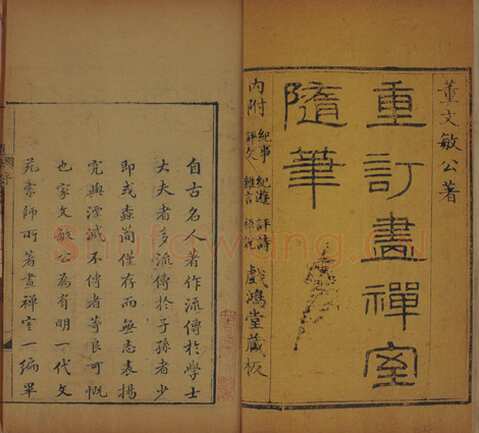 董文敏公著
重訂畫禪室
隨筆
內附 紀事 紀遊 評詩
評文 雜言
戲鴻堂藏板
自古名人著作流傳於學士
大夫者多流傳於子孫者少
即或蠹簡僅存而無志表揚
究與湮滅不傳者等良可慨
也家文敏公為有明一代文
苑宗師所著畫禪室一編單